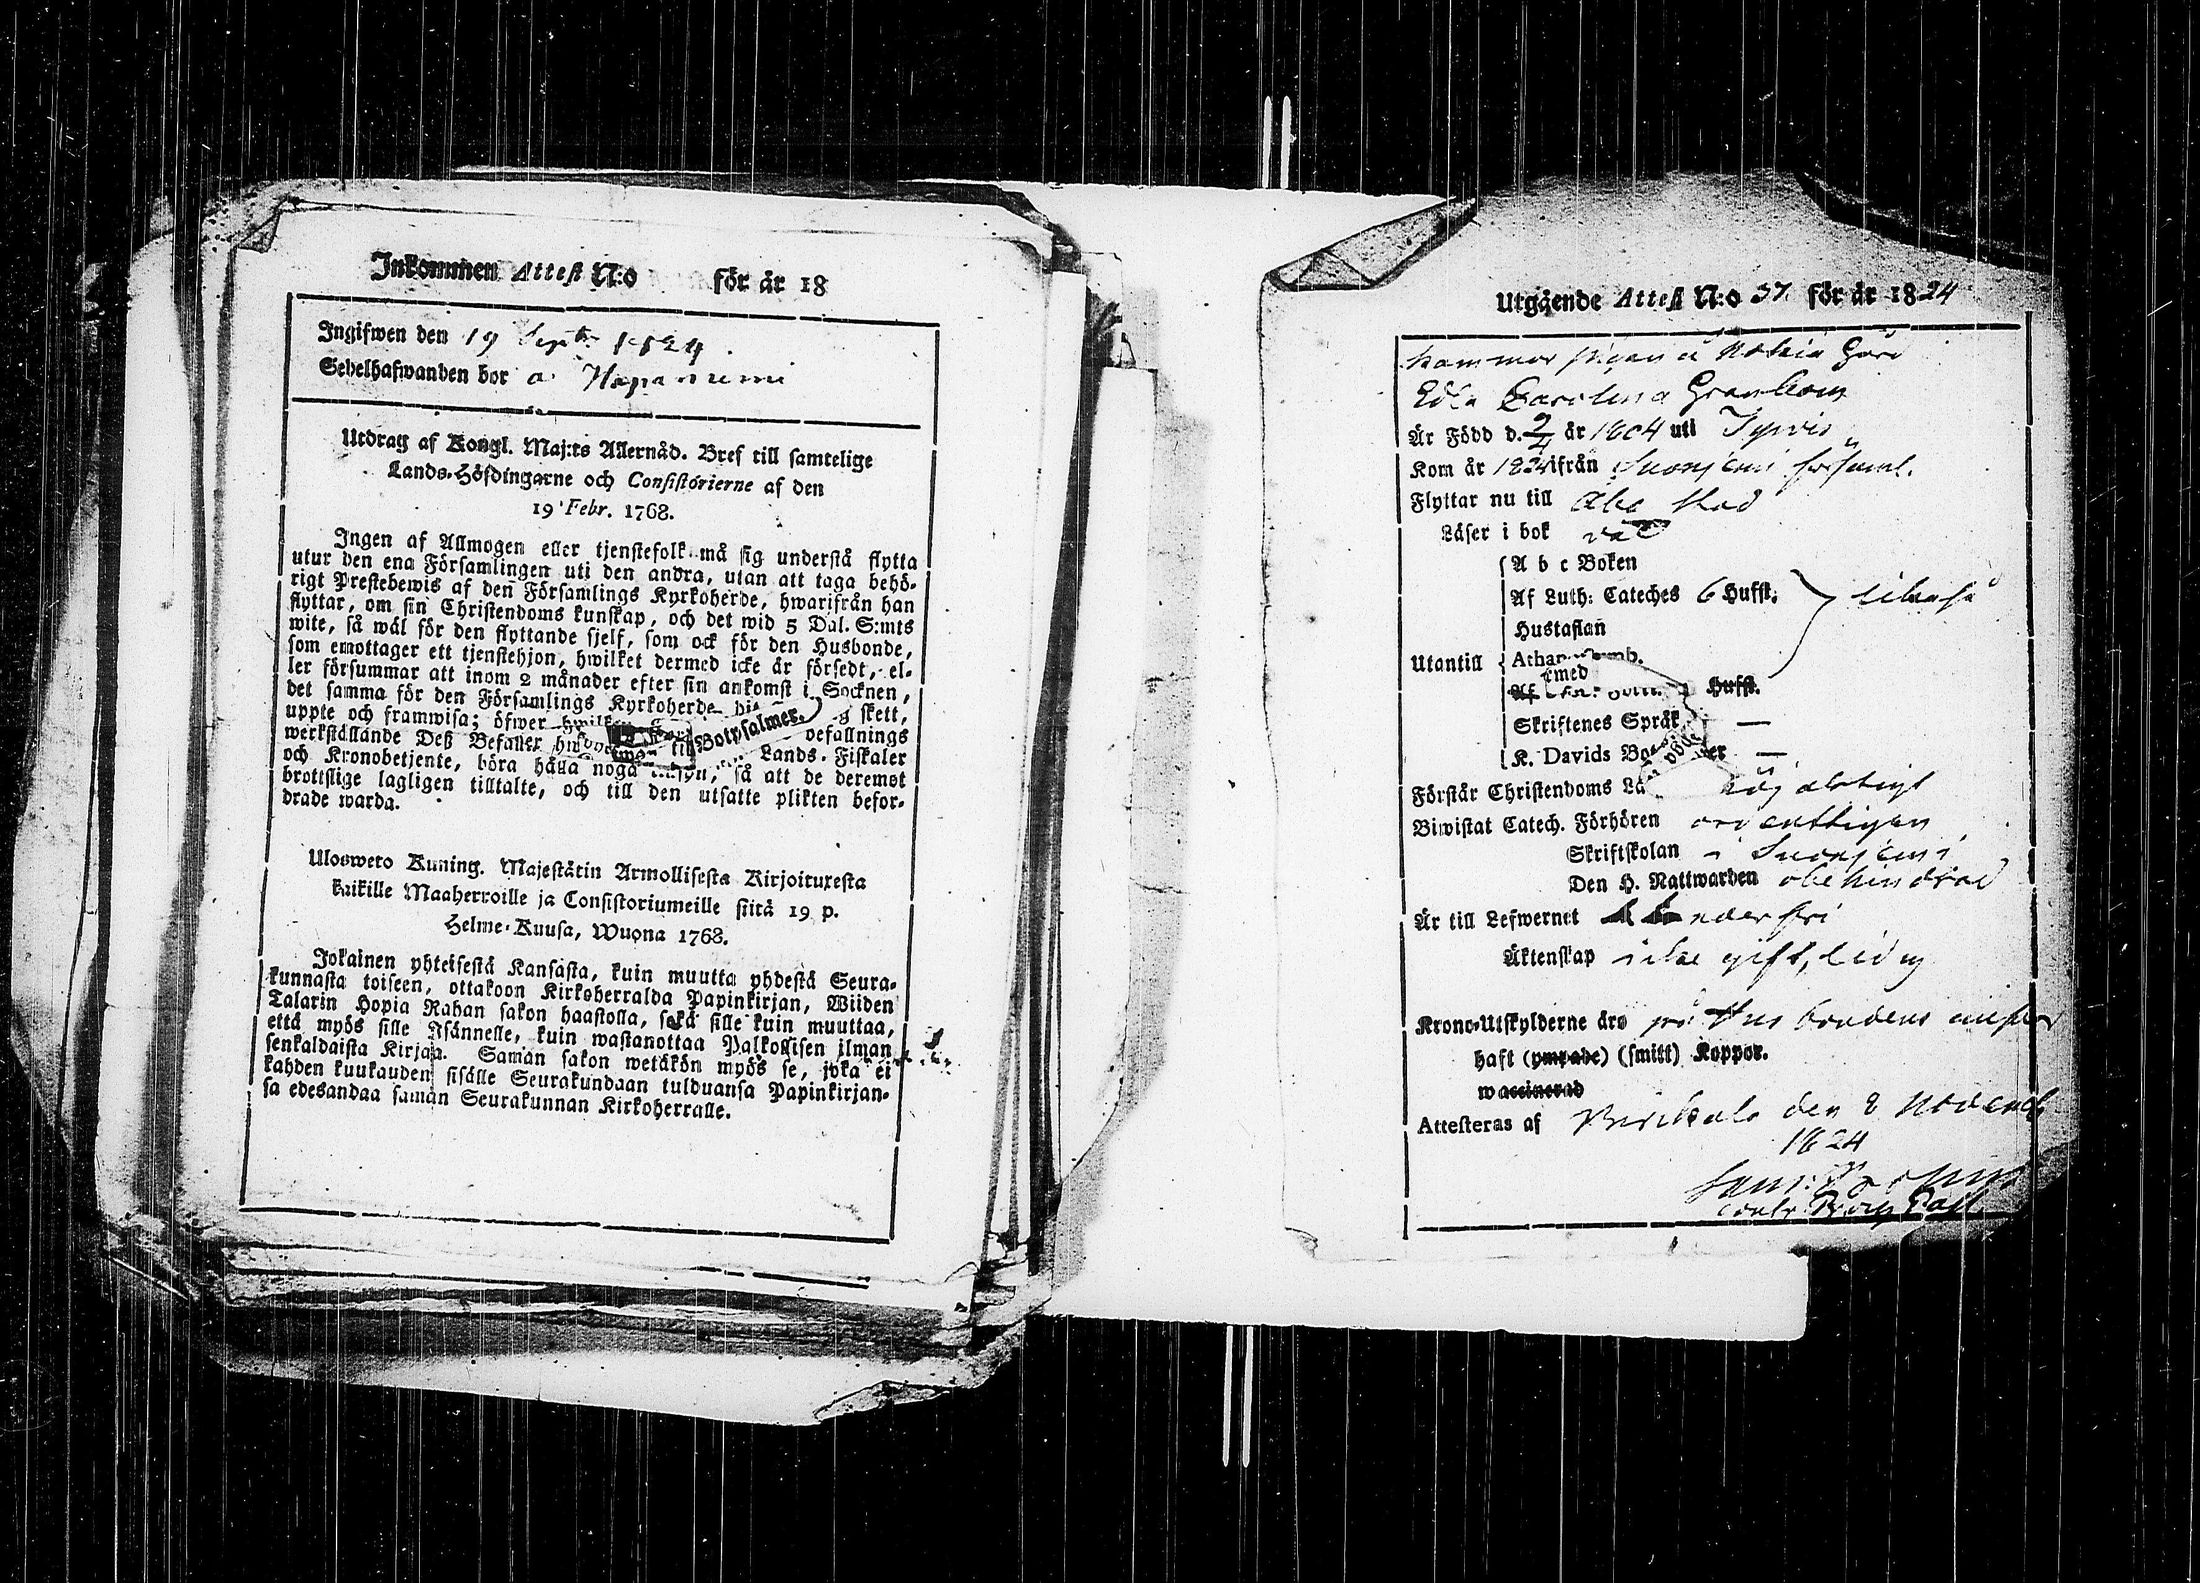 Inkommen Attest N:o för år 18
Ingifwen den 19 Sept: 1824.
Sedelhafwanden bor a
Utdrag af Kongl. Maj:ts Allernåd. Bref till samtelige
Lands-Höfdingarne och Consistorierne af den
19 Febr. 1768.
Ingen af Allmogen eller tjenstefolk må sig understå flytta
utur den ena Församlingen uti den andra, utan att taga behö-
rigt Prestebewis af den Församlings Kyrkoherde, hwarifrån han
flyttar, om sin Christendoms kunskap, och det wid 5 Dal. S:mts
wite, så wäl för den flyttande sjelf, som ock för den Husbonde,
som emottager ett tjenstehjon, hwilket dermed icke är försedt, el-
ler försummar att inom 2 månader efter sin ankomst i Socknen,
det samma för den Församlings Kyrkoherde skett,
uppte och framwisa; öfwer Botpsalmer. befallnings
werkställande Deß Befaller Lands-Fiskaler
och Kronobetjente, böra hålla noga så att de deremot
brottslige lagligen tilltalte, och till den utsatte plikten befor-
drade warda.
Ulosweto Kuning. Majestätin Armollisesta Kirjoituxesta
kaikille Maaherroille ja Consistoriumeille siitä 19 p.
Helme-Kuusa, Wuona 1768.
Jokainen yhteisestä Kansasta, kuin muutta yhdestä Seura-
kunnasta toiseen, ottakoon Kirkoherralda Papinkirjan, Wiiden
Talarin Hopia Rahan sakon haastolla, sekä sille kuin muuttaa,
että myös sille Isännelle, kuin wastanottaa Palkollisen ilman
senkaldaista Kirjan. Saman sakon wetäkön myös se, joka ei
kahden kuukauden sisälle Seurakundaan tulduansa Papinkirjan-
sa edesandaa saman Seurakunnan Kirkoherralle.
Utgående Attest N:o 37. för år 1824
kammar pigan å Nokia Gård
Edla Carolina Granbom
Är Född d. 2/4 år 1804 uti Tyrvis
Kom år 1824 ifrån Suonjemi församl.
Flyttar nu till Åbo Stad
Läser i bok
A b c Boken
Af Luth: Cateches 6 Hufst. likaså
Hustaflan
Utantill Athan. Symb.
med
Af Hufst.
Skriftenes Språk —
K. Davids —
Förstår Christendoms nöjaktigt
Biwistat Catech. Förhören ordentligen
Skriftskolan i Suonjemi
Den H. Nattwarden obehindrad
Är till Lefwernet
Äktenskap icke gift, ledig
Krono-Utskylderne äro på Husbondens
haft (ympade) (smitt) Koppor.
waccinerad
Attesteras af Birkala den 8 Novemb
1824